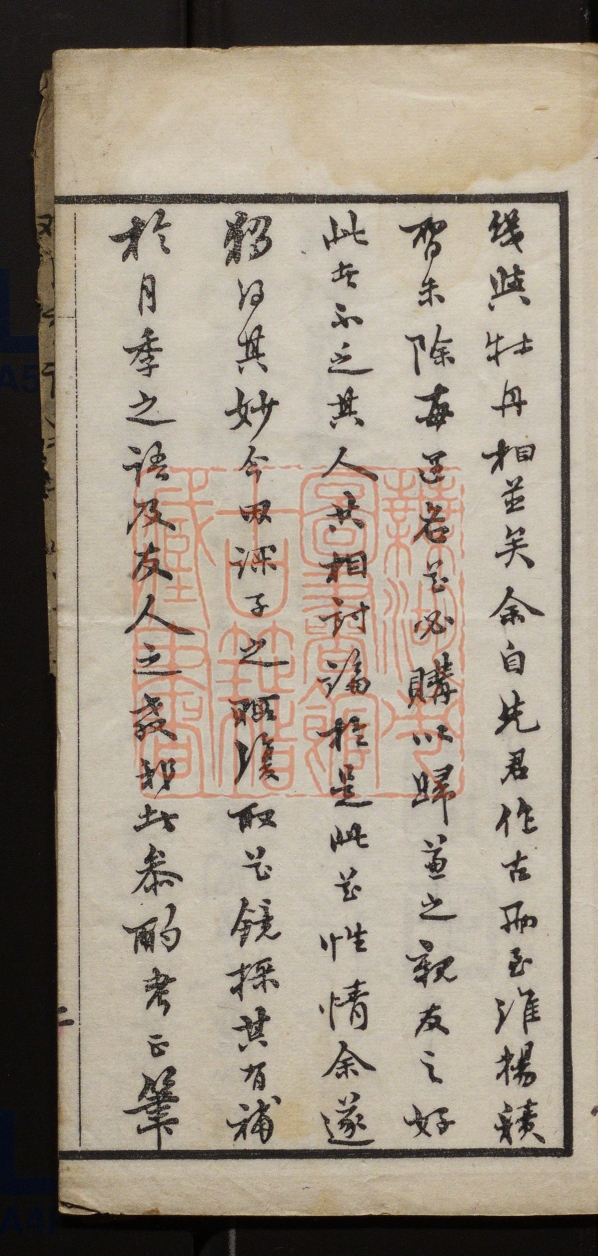 幾與牡丹相並矣余自先君作古孤至淮揚積
習未除每逢名花必購以歸兼之親友之好
此者不乏其人共相討論於是此花性情余遂
稍得其妙今因課子之暇復取花鏡採其有補
於月季之語及友人之教我者參酌考正筆